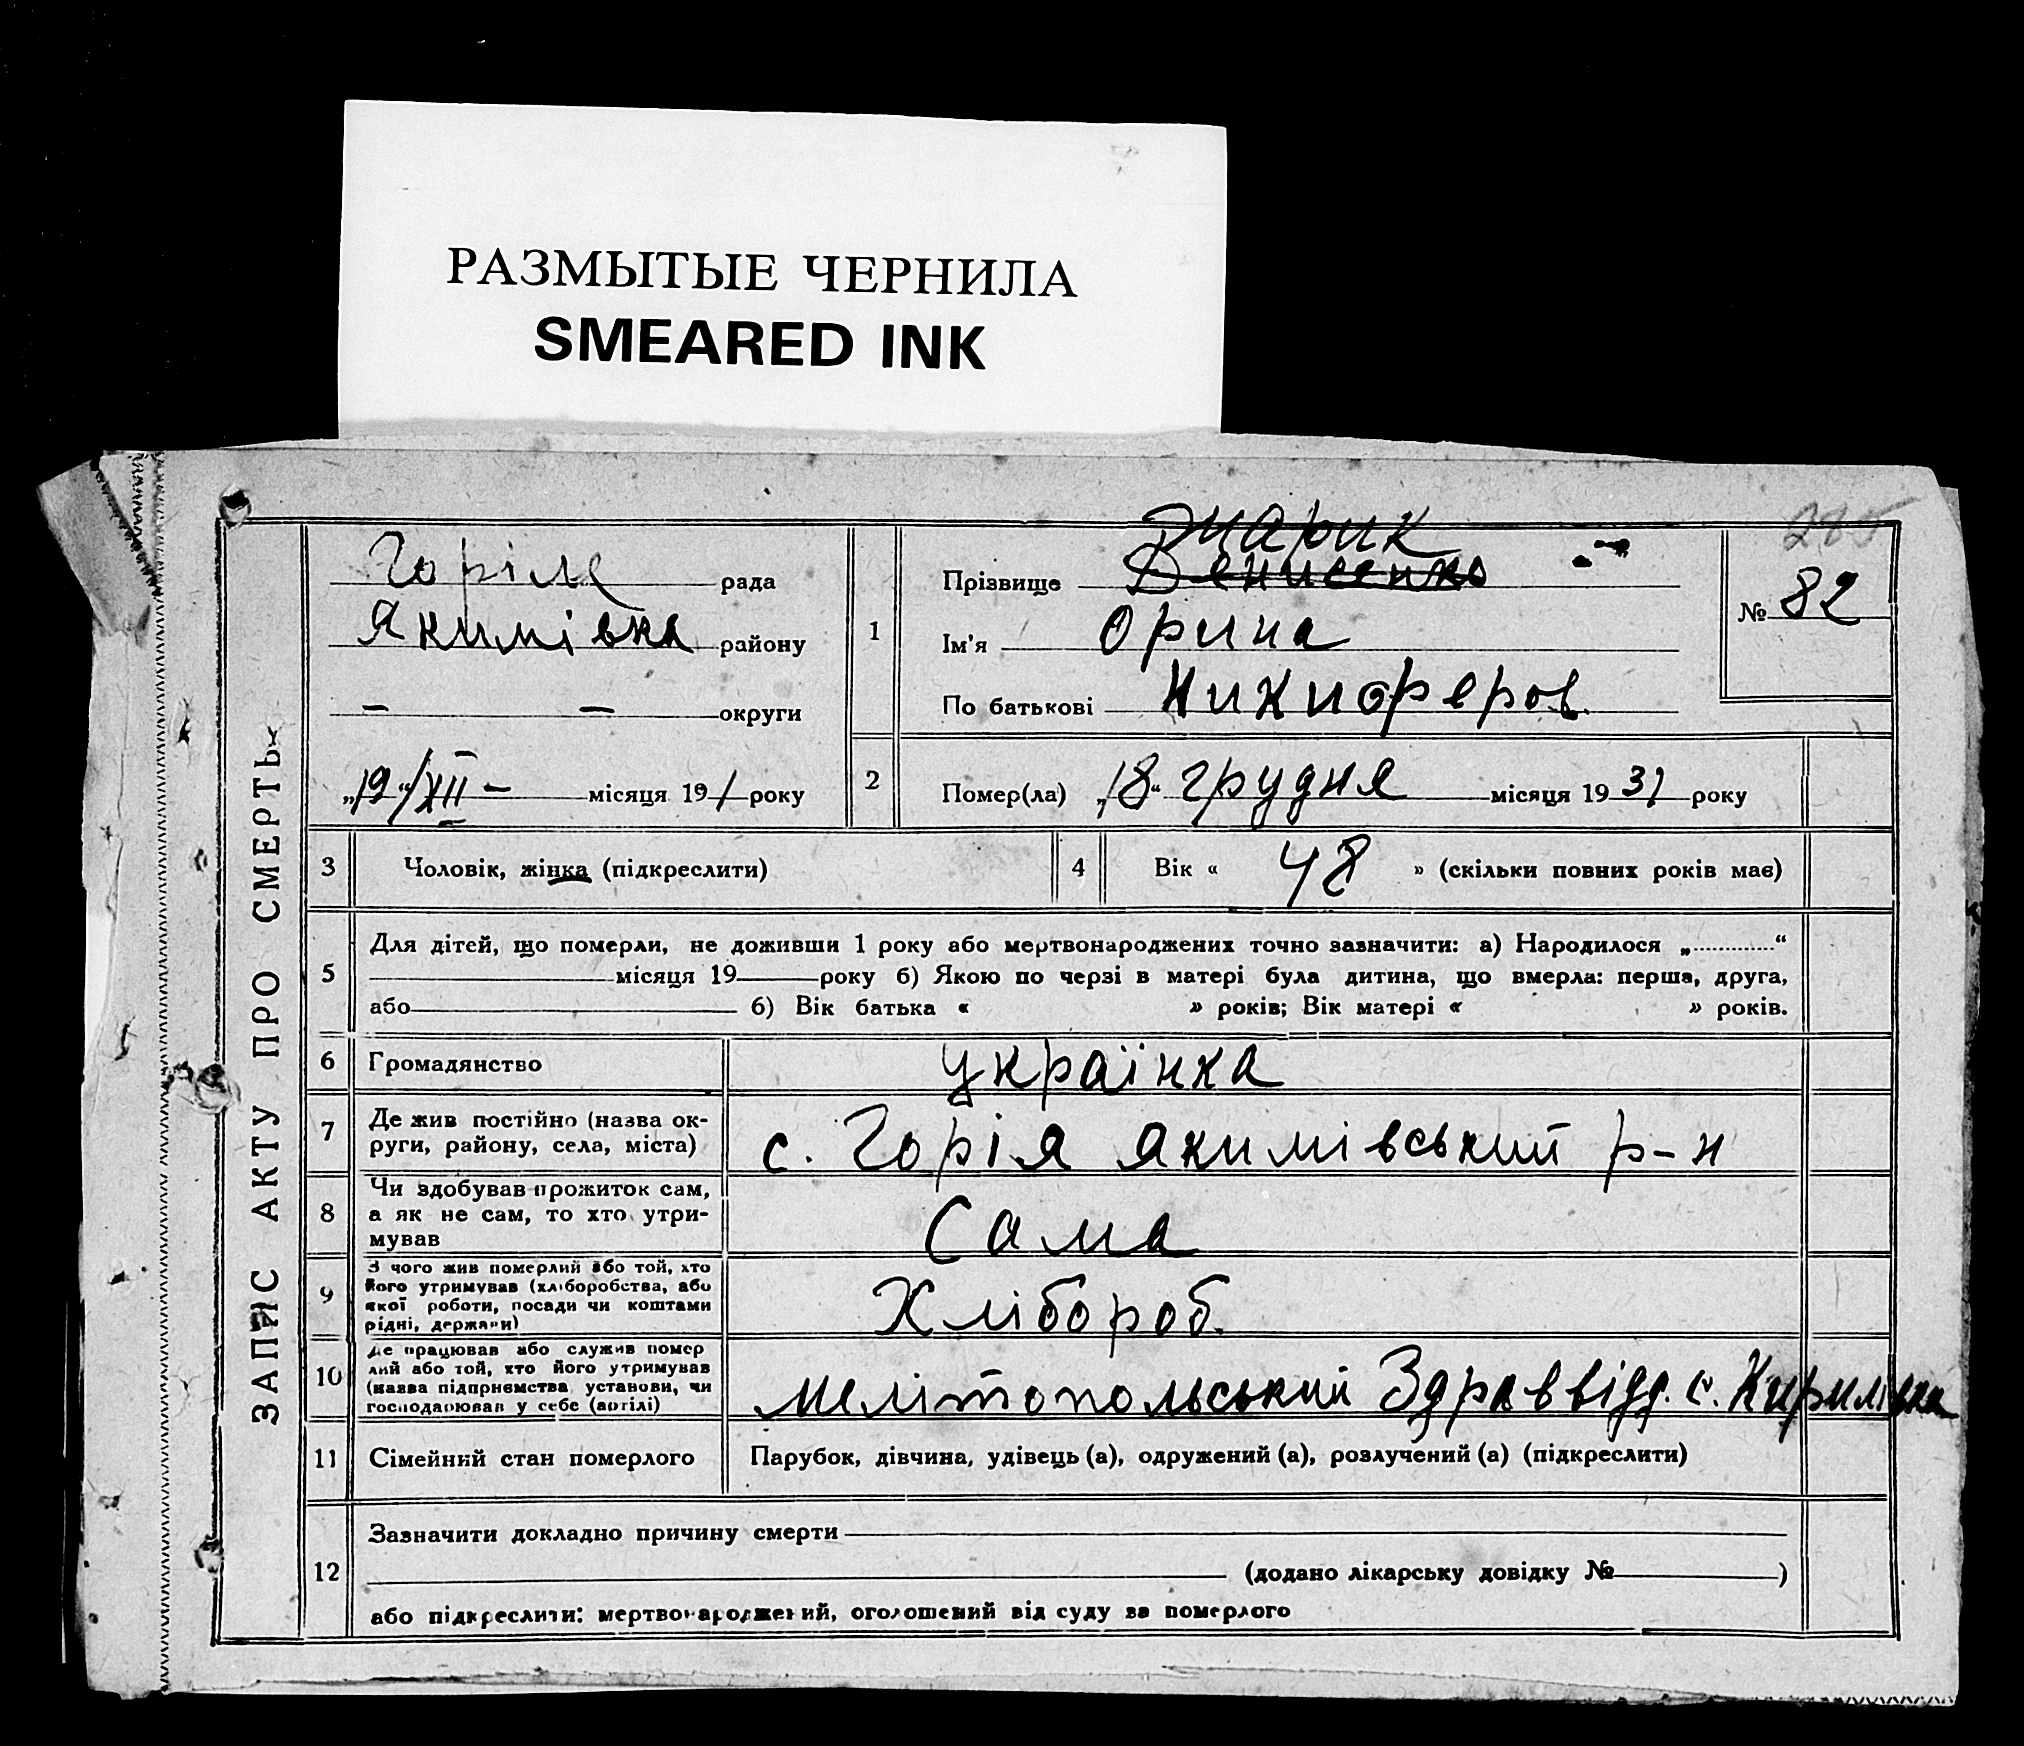 РАЗМЫТЫЕ ЧЕРНИЛА
SMEARED INK
285
ЗАПИС АКТУ ПРО СМЕРТЬ
рада
Якимівка району
— — округи
„19“/XII — місяця 191 року
1
Прізвище Денисенко
Ім'я Орина
По батькові Никиферов
№ 82
2
Помер(ла) „18“ грудня місяця 1931 року
3 Чоловік, жінка (підкреслити)
4 Вік « 48 » (скільки повних років має)
5
Для дітей, що померли, не доживши 1 року або мертвонароджених точно зазначити: а) Народилося „ “
місяця 19 року б) Якою по черзі в матері була дитина, що вмерла: перша, друга,
або б) Вік батька « » років; Вік матері « » років.
6 Громадянство українка
7
Де жив постійно (назва ок-
руги, району, села, міста)
с. Горія Якимівський р-н
8
Чи здобував прожиток сам,
а як не сам, то хто утри-
мував
Сама
9
З чого жив померлий або той, хто
його утримував (хліборобства, або
якої роботи, посади чи коштами
рідні, держави)
Хлібороб.
10
Де працював або служив помер
лий або той, хто його утримував
(назва підприємства, установи, чи
господарював у себе (артілі)
Мелітопольський Здраввідд. с. Кирилівка
11 Сімейний стан померлого Парубок, дівчина, удівець (а), одружений (а), розлучений (а) (підкреслити)
12
Зазначити докладно причину смерти
(додано лікарську довідку № )
або підкреслити: мертвонароджений, оголошений від суду за померлого